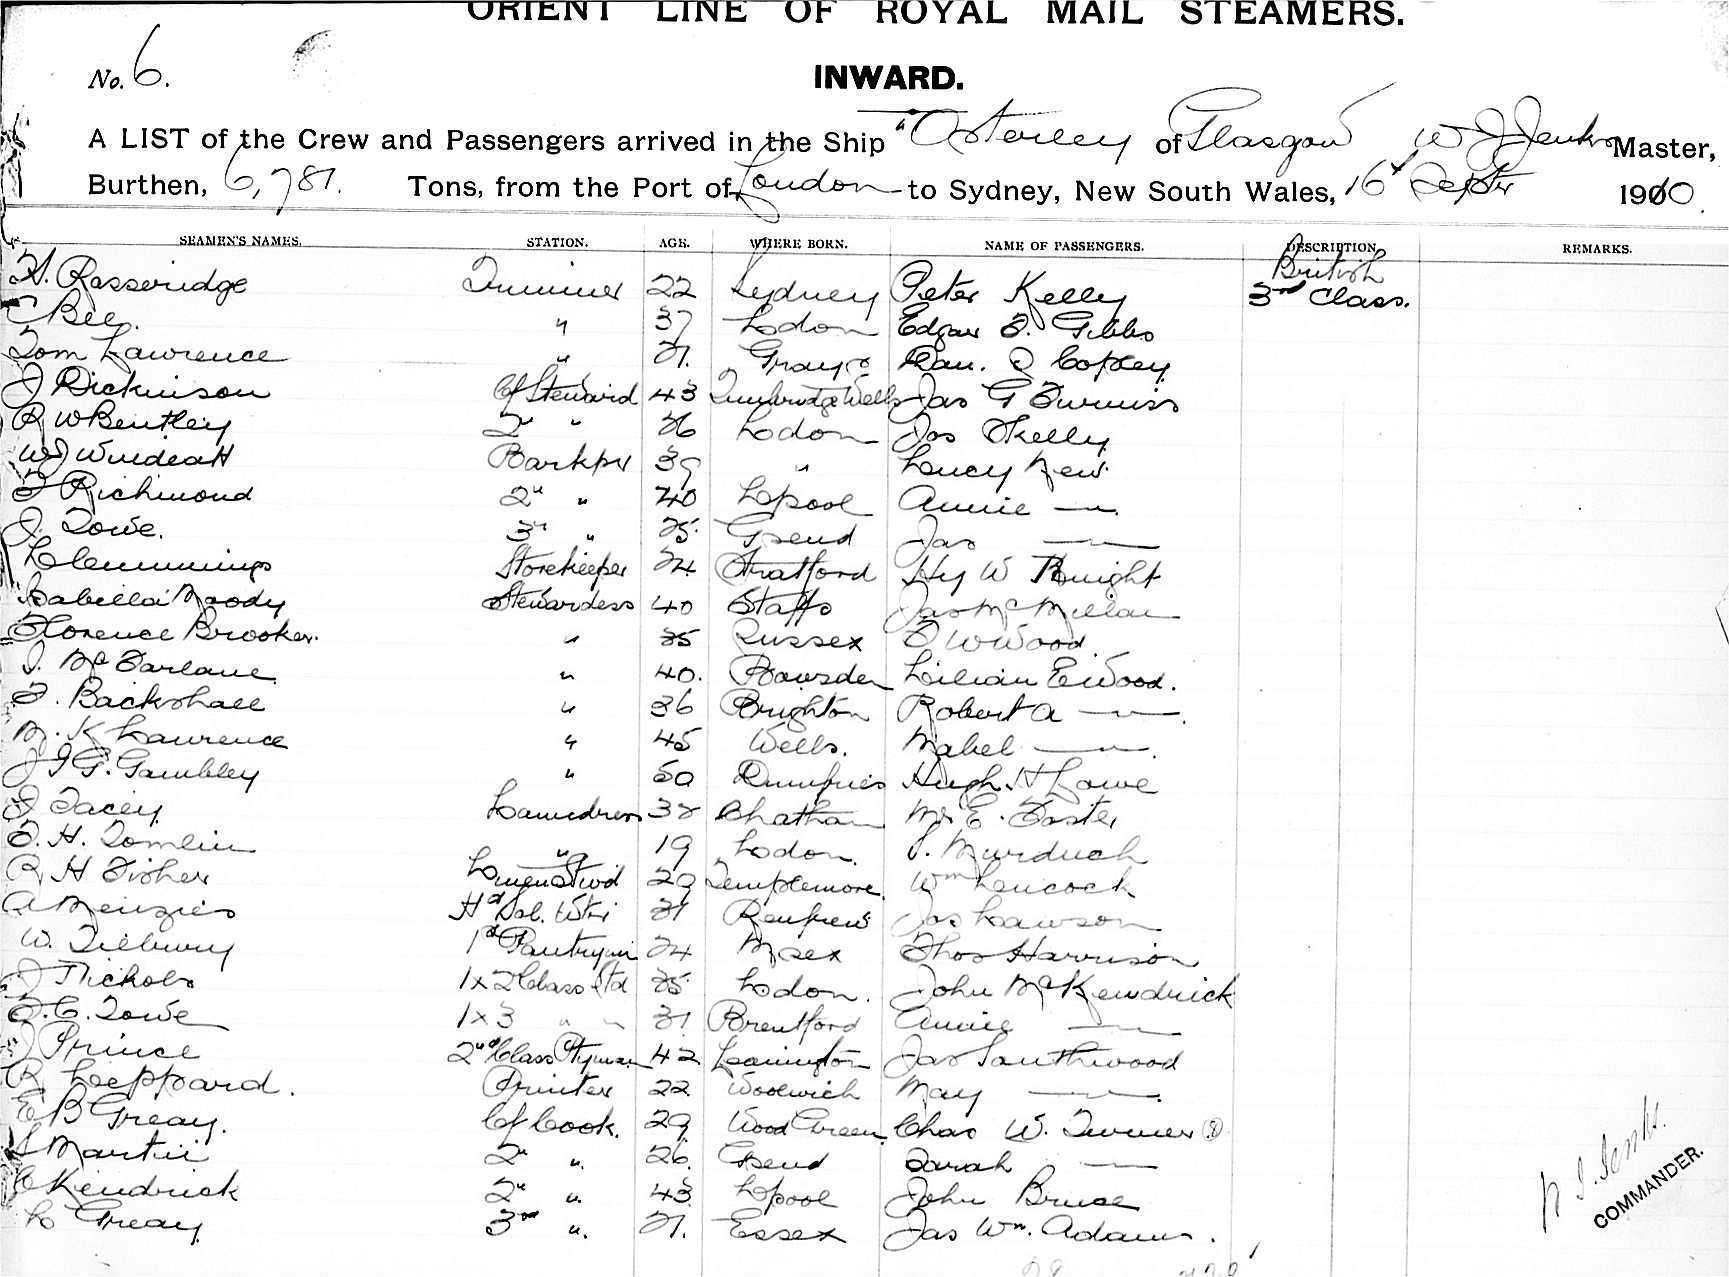 ORIENT LINE OF ROYAL MAIL STEAMERS.
No. 6.
INWARD.
A LIST of the Crew and Passengers arrived in the Ship "Osterley of Glasgow W J Jenks Master,
Burthen, 6,781. Tons, from the Port of London to Sydney, New South Wales, 16th Septr 1910.
SEAMEN'S NAMES. STATION. AGE. WHERE BORN. NAME OF PASSENGERS. DESCRIPTION. REMARKS.
H. Rasseridge Trimmer 22 Sydney Peter Kelly British 3rd Class.
C Bee. " 37 Lodon Edgar F. Gibbs
Tom Lawrence " 21. Grays Dan. Copley
J Dickinson Cf Steward 43 Tunbridge Wells Jas G Furniss
R W Bentley 2" " 26 Lodon Jas Kelly
W J Windeatt Barkpr 39 " Lucy New
F Richmond 2" " 40 Lpool Annie —"—
J. Towe. 3" " 25 Gsend Jas —"—
L Clemmings Storekeeper 24 Stratford Hy W Knight
Isabella Moody Stewardess 40 Staffs Jas McMillan
Florence Brooker. " 35 Sussex F W Wood
J. McFarlane " 40. Lilian E Wood.
F. Backshall " 36 Brighton Robert A —"—.
M. K Lawrence " 45 Wells. Mabel —"—.
J I G. Gambley " 50 Dumfries Hugh H Lowe
J Tacey Laundress 38 Chatham Mr E. Foster
F. H. Tomlin " 19 Lodon. S. Murdoch
R H Fisher Linen Stwd 29 Templemore. Wm Leucock
A Menzies Hd Sal. Wtr 31 Renfrew Jas Lawson
W. Tilbury 1st Pantryman 24 Msex Thos Harrison
J Nichols 1x2 Class Std 25 Lodon. John McKendrick
F. C. Towe 1x3 " " 31 Brentford Annie —"—
J Prince 2nd Class Ptyman 42 Leamington Jas Southwood
R Leppard. Printer 22 Woolwich May —"—.
E B Greay. Cf Cook. 29 Wood Green Chas W. Turner (8)
S Martin 2" " 26. Gsend Sarah —"—
C Kendrick 2" " 43 Lpool John Bruce
L Greay 3rd " 21. Essex Jas Wm. Adams.
W. J. Jenks.
COMMANDER.